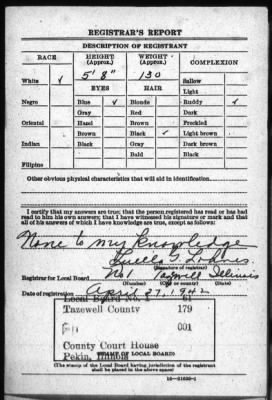 REGISTRAR'S REPORT
DESCRIPTION OF REGISTRANT
RACE
HEIGHT (Approx.)
WEIGHT (Approx.)
COMPLEXION
White ✓
5' 8"
130
Sallow
Light
EYES
HAIR
Negro
Blue ✓
Blonde
Ruddy ✓
Gray
Red
Dark
Oriental
Hazel
Brown
Freckled
Brown
Black ✓
Light brown
Indian
Black
Gray
Dark brown
Bald
Black
Filipino
Other obvious physical characteristics that will aid in identification
I certify that my answers are true; that the person registered has read or has had
read to him his own answers; that I have witnessed his signature or mark and that
all of his answers of which I have knowledge are true, except as follows:
None to my knowledge
Luella
(Signature of registrar)
Registrar for Local Board No 1 Tazewell Illinois
(Number) (City or county) (State)
Date of registration April 27, 1942
Local Board No. 61
Tazewell County 179
001
County Court House
Pekin, Illinois
(STAMP OF LOCAL BOARD)
(The stamp of the Local Board having jurisdiction of the registrant
shall be placed in the above space.)